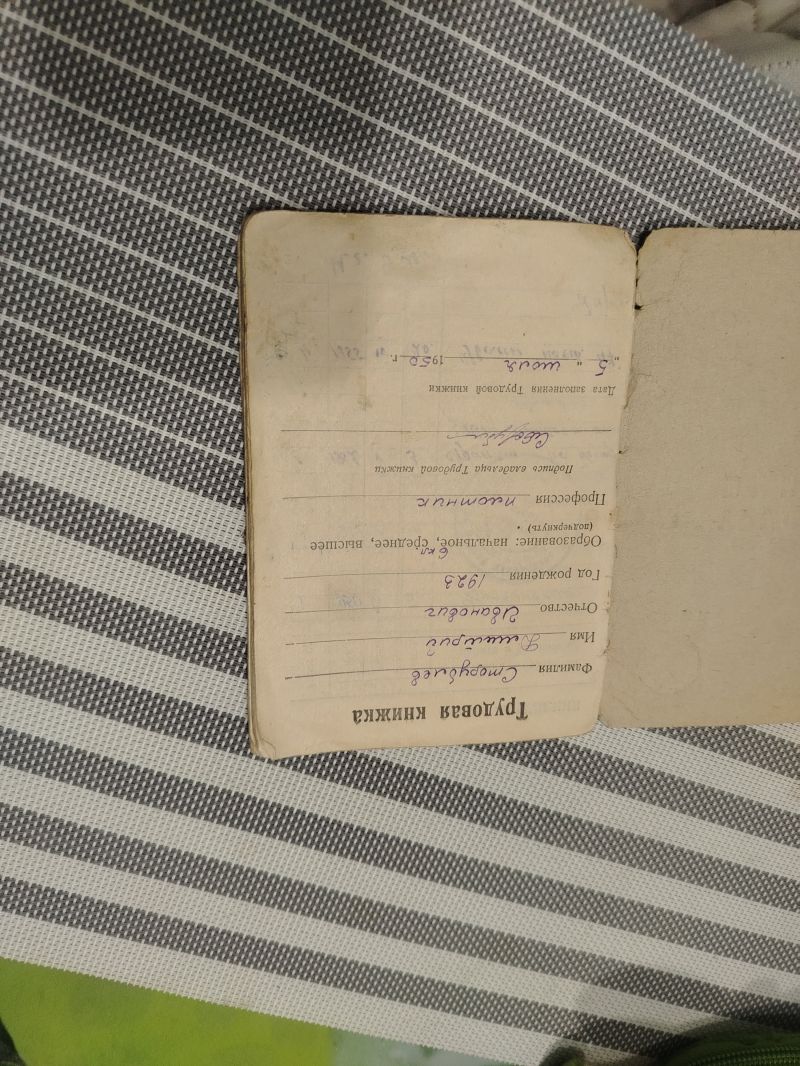 Трудовая книжка
Фамилия Сторублев
Имя Дмитрий
Отчество Иванович
Год рождения 1923
Образование: начальное, среднее, высшее
6 кл
(подчеркнуть)
Профессия плотник
Подпись владельца Трудовой книжки
Дата заполнения Трудовой книжки
„5" июля 1950 г.